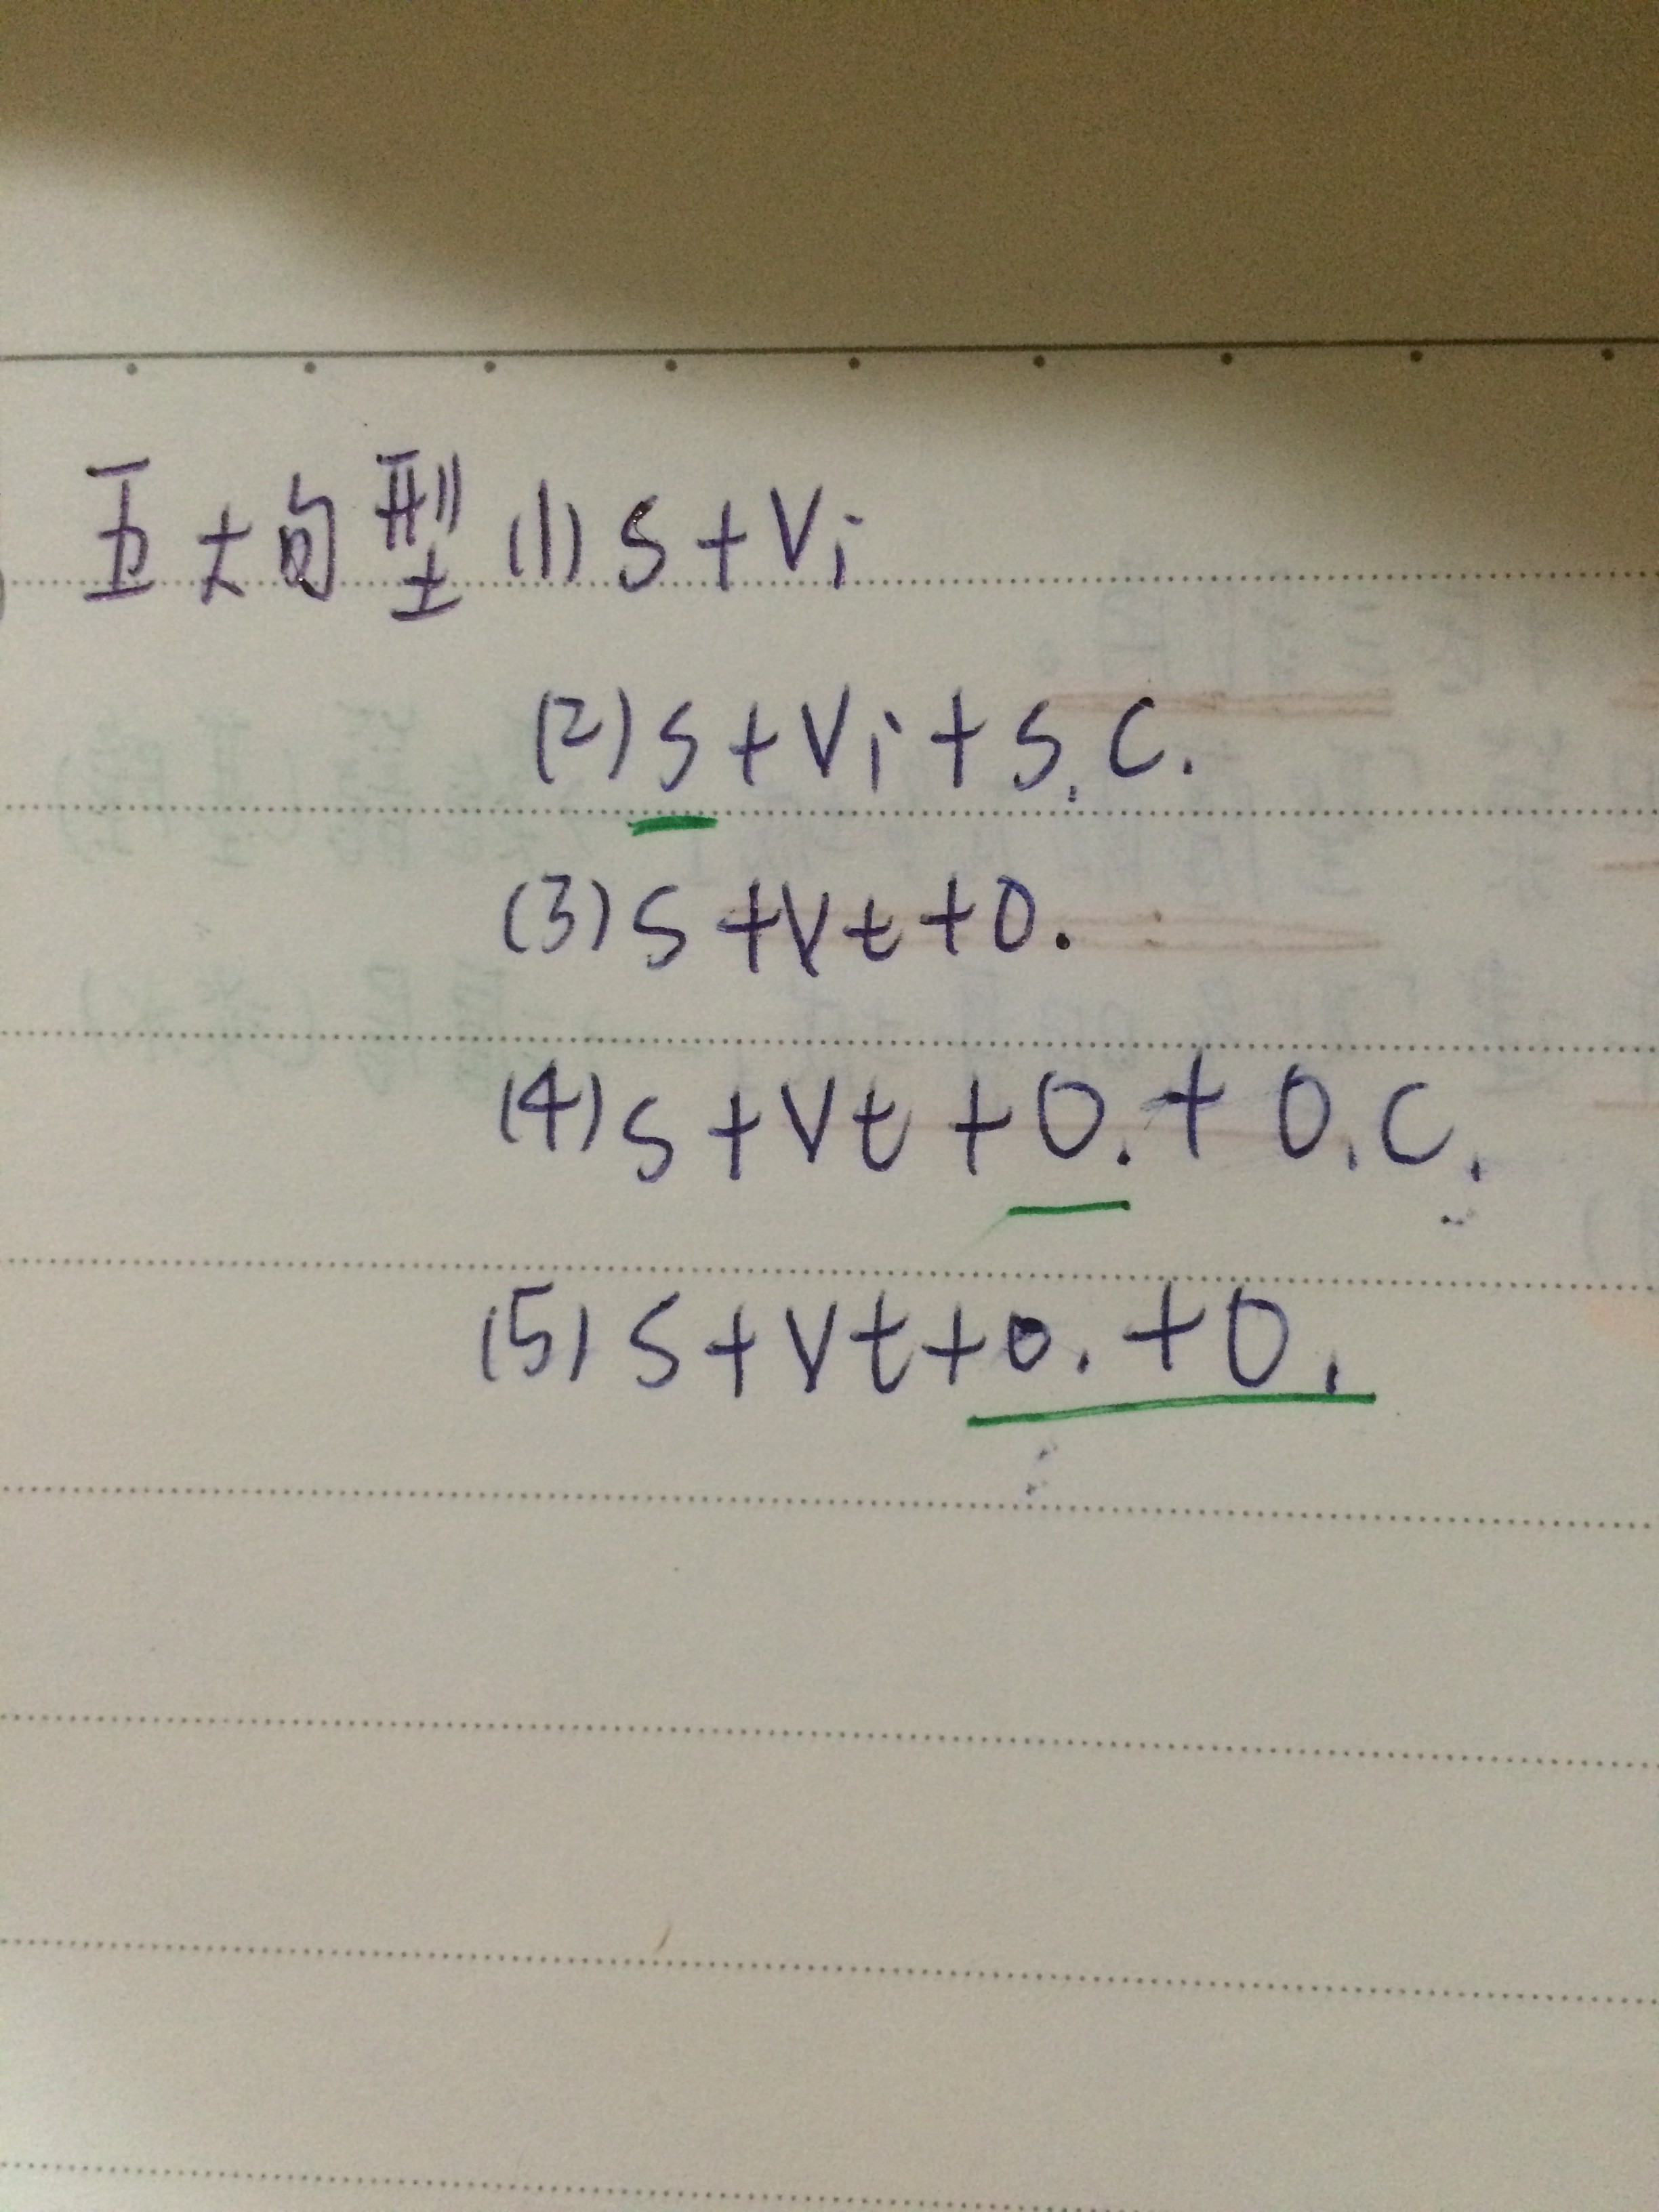 五大句型 (1) S+Vi
(2) S+Vi+S.C.
(3) S+Vt+O.
(4) S+Vt+O.+O.C.
(5) S+Vt+O.+O.